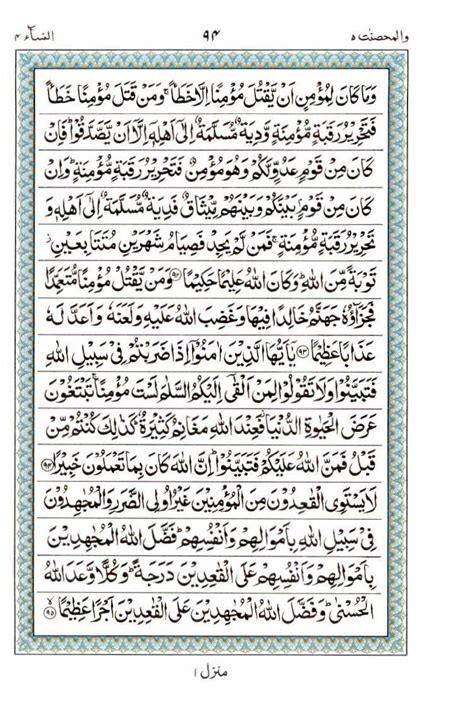 والمحصنت ۵ ۹۴ النساء ۴
وَمَا كَانَ لِمُؤْمِنٍ اَنْ يَّقْتُلَ مُؤْمِنًا اِلَّا خَطَـًٔا ۚ وَمَنْ قَتَلَ مُؤْمِنًا خَطَـًٔا
فَتَحْرِيْرُ رَقَبَةٍ مُّؤْمِنَةٍ وَّدِيَةٌ مُّسَلَّمَةٌ اِلٰٓى اَهْلِهٖٓ اِلَّآ اَنْ يَّصَّدَّقُوْا ؕ فَاِنْ
كَانَ مِنْ قَوْمٍ عَدُوٍّ لَّكُمْ وَهُوَ مُؤْمِنٌ فَتَحْرِيْرُ رَقَبَةٍ مُّؤْمِنَةٍ ؕ وَاِنْ
كَانَ مِنْ قَوْمٍۭ بَيْنَكُمْ وَبَيْنَهُمْ مِّيْثَاقٌ فَدِيَةٌ مُّسَلَّمَةٌ اِلٰٓى اَهْلِهٖ وَ
تَحْرِيْرُ رَقَبَةٍ مُّؤْمِنَةٍ ۚ فَمَنْ لَّمْ يَجِدْ فَصِيَامُ شَهْرَيْنِ مُتَتَابِعَيْنِ ز
تَوْبَةً مِّنَ اللّٰهِ ؕ وَكَانَ اللّٰهُ عَلِيْمًا حَكِيْمًا ﴿۹۲﴾ وَمَنْ يَّقْتُلْ مُؤْمِنًا مُّتَعَمِّدًا
فَجَزَآؤُهٗ جَهَنَّمُ خَالِدًا فِيْهَا وَغَضِبَ اللّٰهُ عَلَيْهِ وَلَعَنَهٗ وَاَعَدَّ لَهٗ
عَذَابًا عَظِيْمًا ﴿۹۳﴾ يٰٓاَيُّهَا الَّذِيْنَ اٰمَنُوْٓا اِذَا ضَرَبْتُمْ فِيْ سَبِيْلِ اللّٰهِ
فَتَبَيَّنُوْا وَلَا تَقُوْلُوْا لِمَنْ اَلْقٰٓى اِلَيْكُمُ السَّلٰمَ لَسْتَ مُؤْمِنًا ۚ تَبْتَغُوْنَ
عَرَضَ الْحَيٰوةِ الدُّنْيَا ز فَعِنْدَ اللّٰهِ مَغَانِمُ كَثِيْرَةٌ ؕ كَذٰلِكَ كُنْتُمْ مِّنْ
قَبْلُ فَمَنَّ اللّٰهُ عَلَيْكُمْ فَتَبَيَّنُوْا ؕ اِنَّ اللّٰهَ كَانَ بِمَا تَعْمَلُوْنَ خَبِيْرًا ﴿۹۴﴾
لَا يَسْتَوِى الْقٰعِدُوْنَ مِنَ الْمُؤْمِنِيْنَ غَيْرُ اُولِى الضَّرَرِ وَالْمُجٰهِدُوْنَ
فِيْ سَبِيْلِ اللّٰهِ بِاَمْوَالِهِمْ وَاَنْفُسِهِمْ ؕ فَضَّلَ اللّٰهُ الْمُجٰهِدِيْنَ
بِاَمْوَالِهِمْ وَاَنْفُسِهِمْ عَلَى الْقٰعِدِيْنَ دَرَجَةً ؕ وَكُلًّا وَّعَدَ اللّٰهُ
الْحُسْنٰى ؕ وَفَضَّلَ اللّٰهُ الْمُجٰهِدِيْنَ عَلَى الْقٰعِدِيْنَ اَجْرًا عَظِيْمًا ﴿۹۵﴾ ۙ
منزل ۱